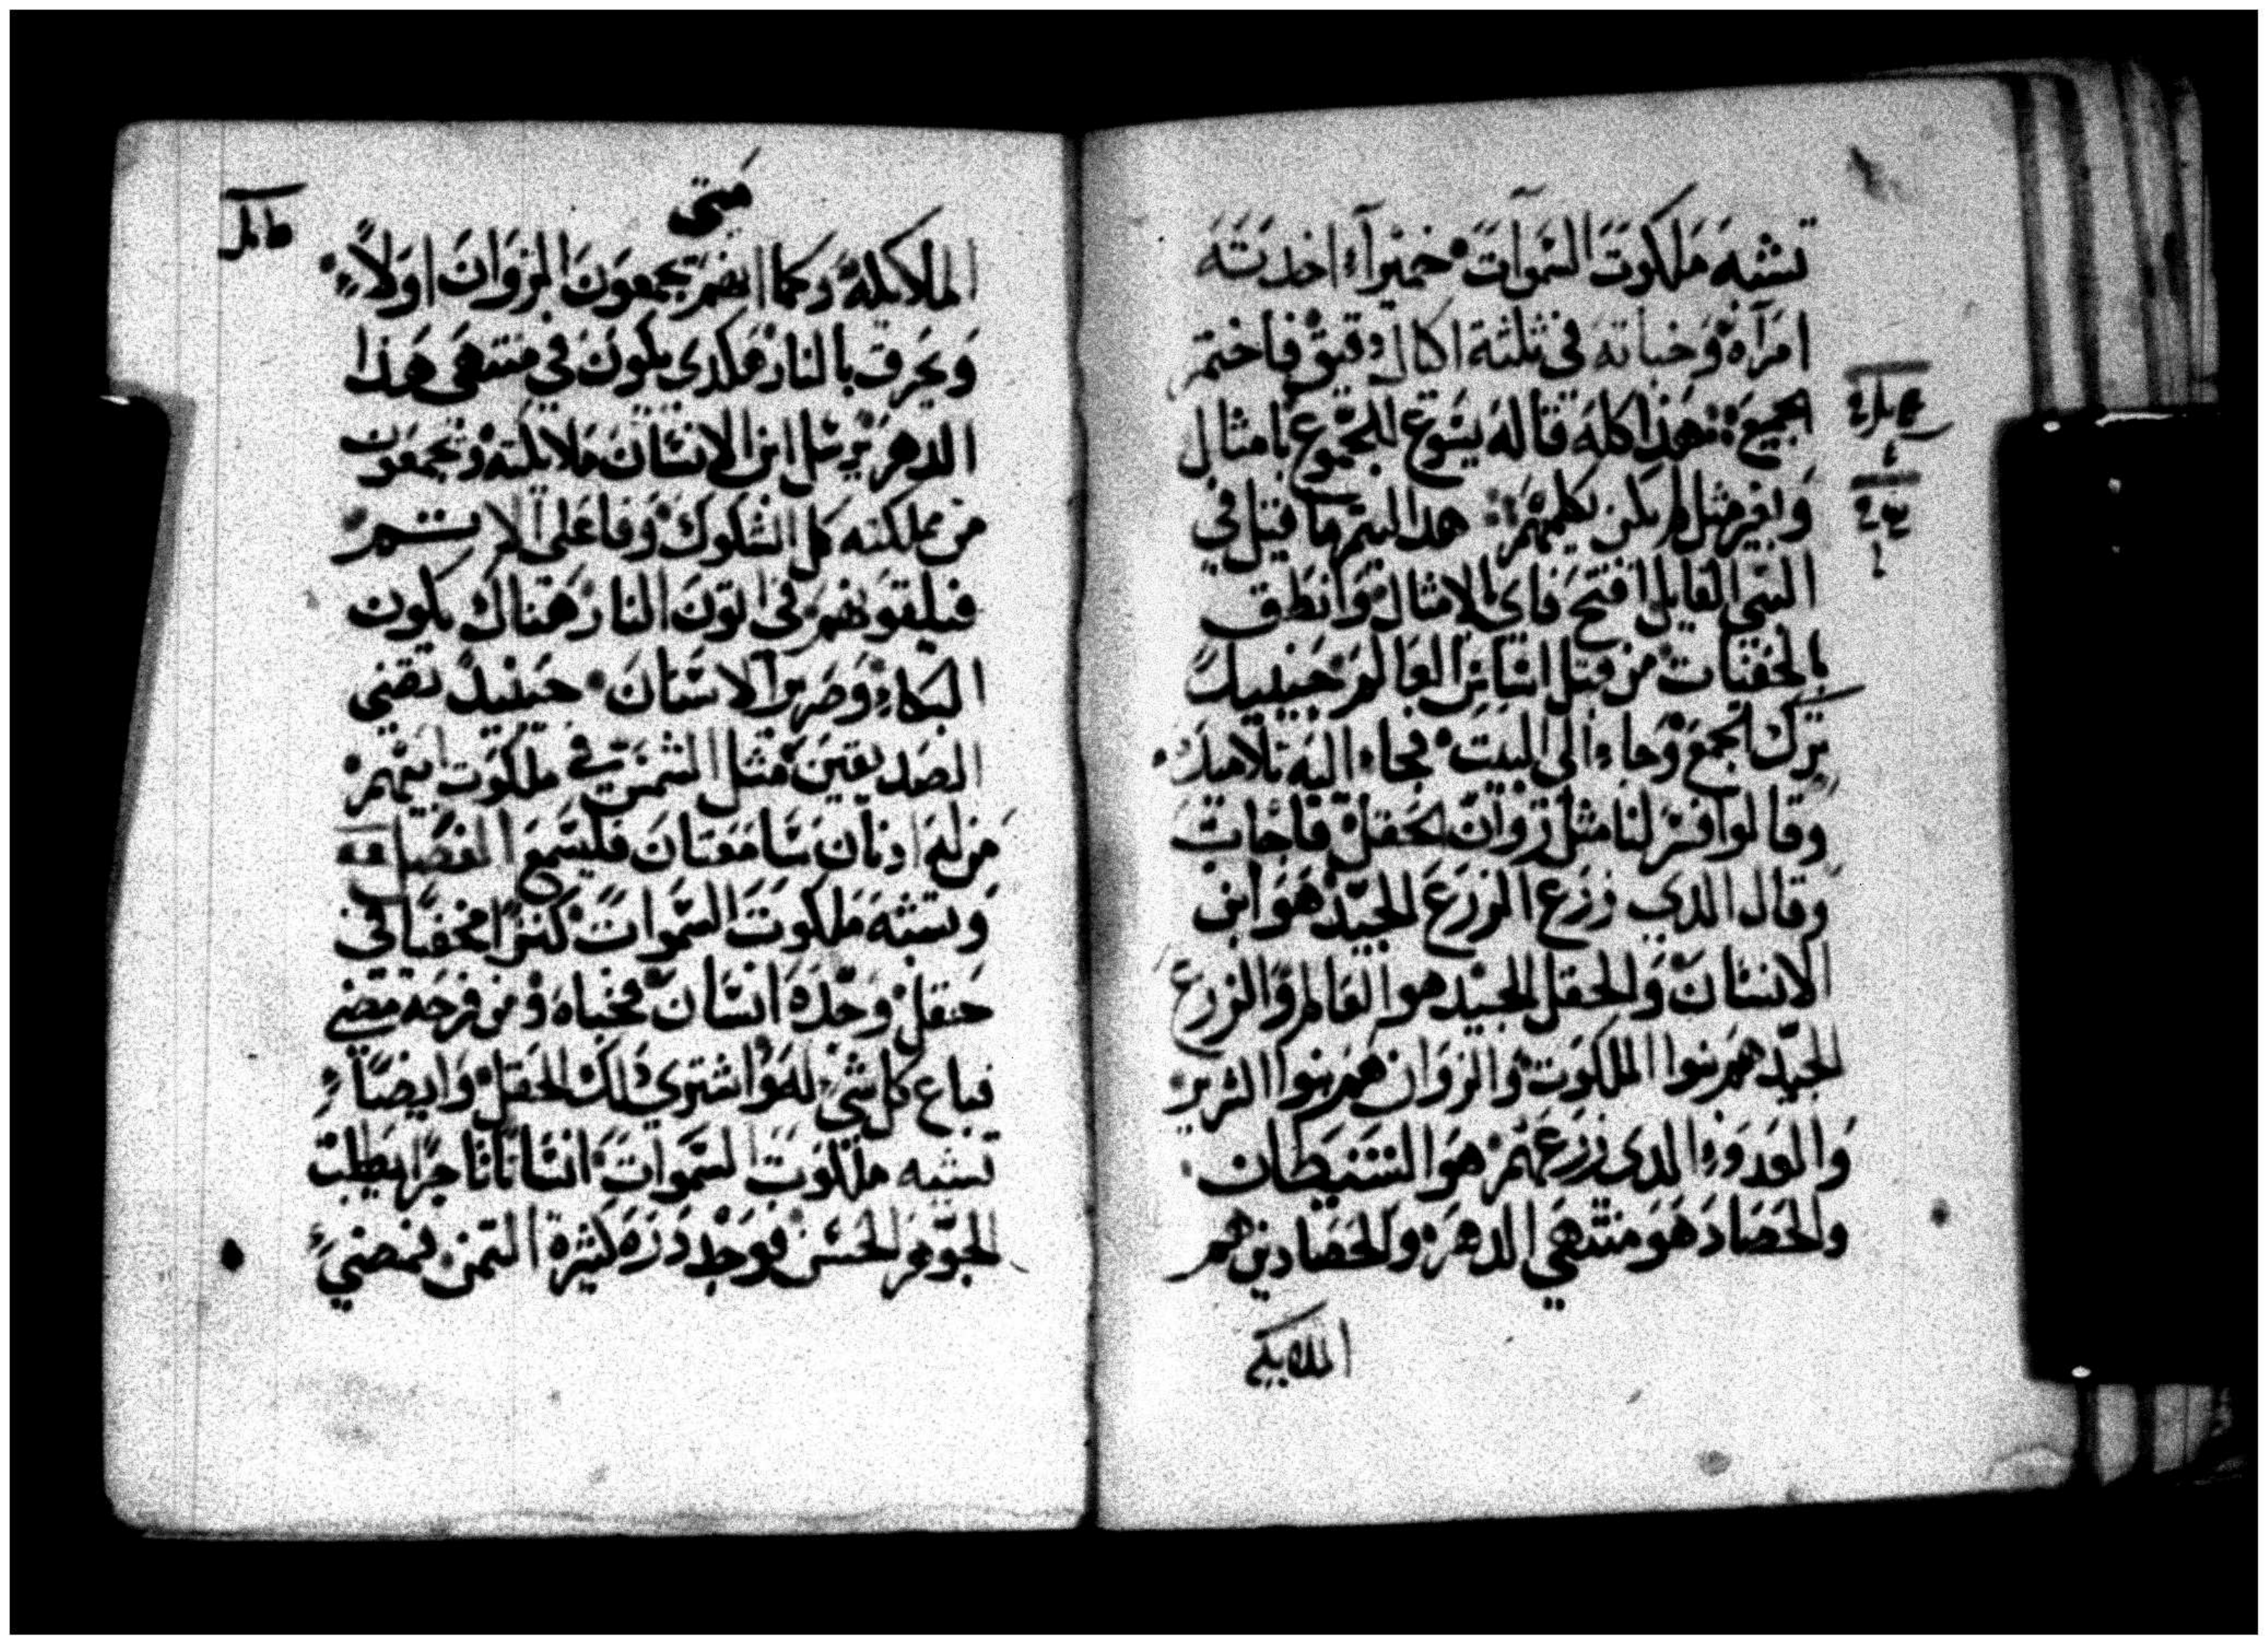 تشبه ملكوت السموات خميراً اخدته
امرآه وخباته في ثلثة اكال دقيق فاختمر
الجميع هذا كله قاله يسوع للجموع بامثال
وبغير مثل لم يكن يكلمهم هدا ليتم ما قيل في
النبي القايل افتح فاي بالامثال وانطق
بالخفيات من قبل اساس العالم حينيد
ترك الجمع وجاء الى البيت فجاء اليه تلاميده
وقالوا فسر لنا مثل زوان الحقل فاجاب
وقال الدي زرع الزرع الجيد هو ابن
الانسان والحقل الجيد هو العالم والزرع
الجيد هم بنوا الملكوت والزوان هم بنوا الشرير
والعدوء الدي زرعهم هو الشيطان
والحصاد هو منتهي الدهر والحصادين هم
الملايكه
متي
الملايكه وكما انهم يجمعون الزوان اولاً
ويحرق بالنار هكدي يكون في منتهى هذا
الدهر يرسل ابن الانسان ملايكته ويجمعون
من مملكته كل الشكوك وفاعلي الاثم
فيلقونهم في اتون النار هناك يكون
البكاء وصرير الاسنان حينيد تضي
الصديقين مثل الشمس في ملكوت ابيهم
من له ادنان سامعتان فليسمع
وتشبه ملكوت السموات كنزاً مخفياً في
حقل وجده انسان فخباه ومن فرحه مضي
فباع كل شي له واشتري دلك الحقل وايضاً
تشبه ملكوت السموات انساناً تاجراً يطلب
الجوهر الحسن فوجد دره كثيرة التمن فمضي